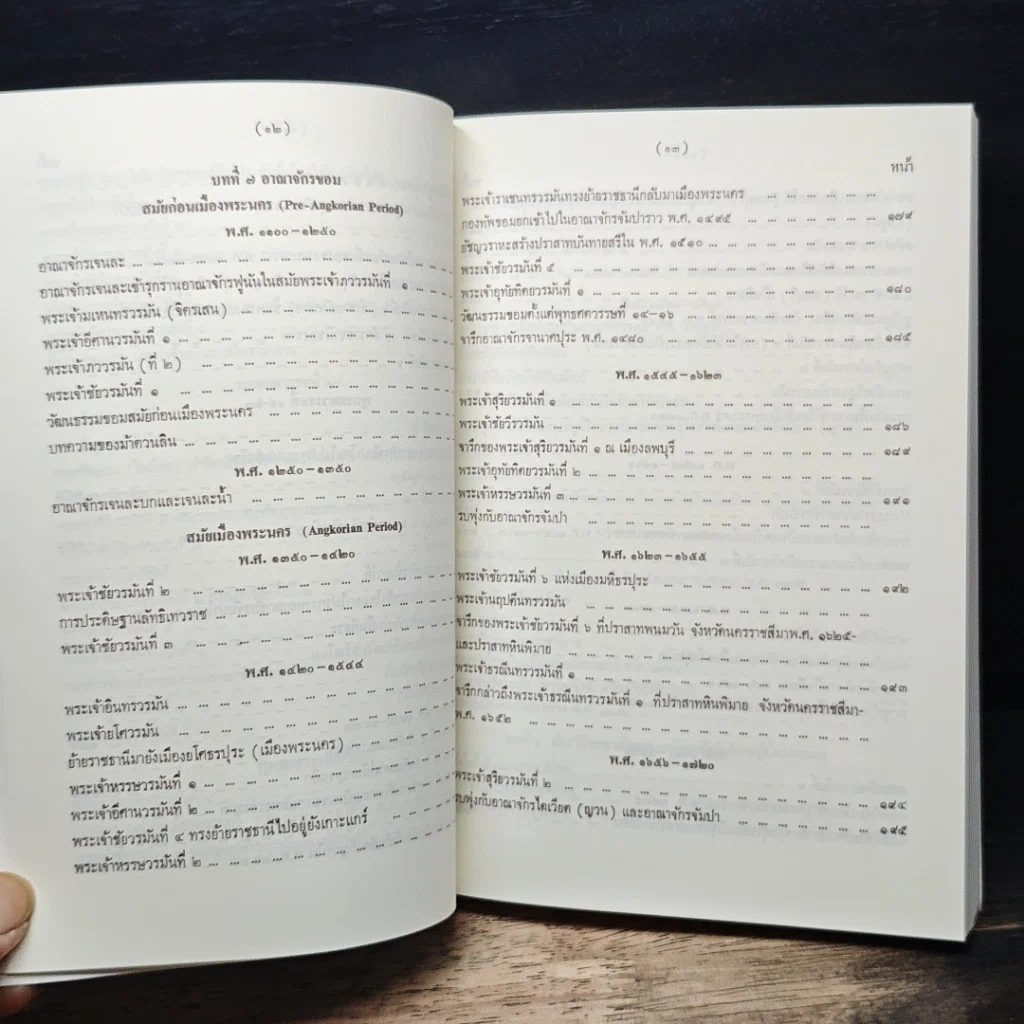 (๑๒)
บทที่ ๗ อาณาจักรขอม
สมัยก่อนเมืองพระนคร (Pre-Angkorian Period)
พ.ศ. ๑๑๐๐-๑๒๕๐
อาณาจักรเจนละ ... ... ... ... ... ... ... ... ... ... ... ...
อาณาจักรเจนละเข้ารุกรานอาณาจักรฟูนันในสมัยพระเจ้าภววรมันที่ ๑ ... ...
พระเจ้ามเหนทรวรมัน (จิตรเสน) ... ... ... ... ... ... ... ...
พระเจ้าอีศานวรมันที่ ๑ ... ... ... ... ... ... ... ... ... ...
พระเจ้าภววรมัน (ที่ ๒) ... ... ... ... ... ... ... ... ...
พระเจ้าชัยวรมันที่ ๑ ... ... ... ... ... ... ... ... ... ...
วัฒนธรรมขอมสมัยก่อนเมืองพระนคร ... ... ... ... ... ... ...
บทความของม้าควนลิน ... ... ... ... ... ... ... ... ...
พ.ศ. ๑๒๕๐-๑๓๕๐
อาณาจักรเจนละบกและเจนละน้ำ ... ... ... ... ... ... ...
สมัยเมืองพระนคร (Angkorian Period)
พ.ศ. ๑๓๕๐-๑๔๒๐
พระเจ้าชัยวรมันที่ ๒ ... ... ... ... ... ... ... ... ... ...
การประดิษฐานลัทธิเทวราช ... ... ... ... ... ... ... ...
พระเจ้าชัยวรมันที่ ๓ ... ... ... ... ... ... ... ... ...
พ.ศ. ๑๔๒๐-๑๕๔๔
พระเจ้าอินทรวรมัน ... ... ... ... ... ... ... ... ... ...
พระเจ้ายโศวรมัน ... ... ... ... ... ... ... ... ... ...
ย้ายราชธานีมายังเมืองยโศธรปุระ (เมืองพระนคร) ... ... ... ...
พระเจ้าหรรษวรมันที่ ๑ ... ... ... ... ... ... ... ... ...
พระเจ้าอีศานวรมันที่ ๒ ... ... ... ... ... ... ... ... ...
พระเจ้าชัยวรมันที่ ๔ ทรงย้ายราชธานีไปอยู่ยังเกาะแกร์ ... ...
พระเจ้าหรรษวรมันที่ ๒ ... ... ... ... ... ... ... ... ...
(๑๓)
หน้า
พระเจ้าราเชนทรวรมันทรงย้ายราชธานีกลับมาเมืองพระนคร ... ... ... ... ...
กองทัพขอมยกเข้าไปในอาณาจักรจัมปาราว พ.ศ. ๑๔๙๕ ... ... ... ... ... ... ๑๗๙
ยัชญวราหะสร้างปราสาทบันทายสรีใน พ.ศ. ๑๕๑๐ ... ... ... ... ... ... ...
พระเจ้าชัยวรมันที่ ๕ ... ... ... ... ... ... ... ... ... ... ... ...
พระเจ้าอุทัยทิตยวรมันที่ ๑ ... ... ... ... ... ... ... ... ... ... ... ... ๑๘๐
วัฒนธรรมขอมตั้งแต่พุทธศตวรรษที่ ๑๔-๑๖ ... ... ... ... ... ... ... ...
จารึกอาณาจักรจานาศปุระ พ.ศ. ๑๔๘๐ ... ... ... ... ... ... ... ... ... ๑๘๕
พ.ศ. ๑๕๔๕-๑๖๒๓
พระเจ้าสุริยวรมันที่ ๑ ... ... ... ... ... ... ... ... ... ... ... ...
พระเจ้าชัยวีรวรมัน ... ... ... ... ... ... ... ... ... ... ... ... ... ๑๘๖
จารึกของพระเจ้าสุริยวรมันที่ ๑ ณ เมืองลพบุรี ... ... ... ... ... ... ... ... ๑๘๙
พระเจ้าอุทัยทิตยวรมันที่ ๒ ... ... ... ... ... ... ... ... ... ... ... ...
พระเจ้าหรรษวรมันที่ ๓ ... ... ... ... ... ... ... ... ... ... ... ... ๑๙๑
รบพุ่งกับอาณาจักรจัมปา ... ... ... ... ... ... ... ... ... ... ... ...
พ.ศ. ๑๖๒๓-๑๖๕๕
พระเจ้าชัยวรมันที่ ๖ แห่งเมืองมหิธรปุระ ... ... ... ... ... ... ... ... ๑๙๒
พระเจ้านฤปตีนทรวรมัน ... ... ... ... ... ... ... ... ... ... ... ...
จารึกของพระเจ้าชัยวรมันที่ ๖ ที่ปราสาทพนมวัน จังหวัดนครราชสีมาพ.ศ. ๑๖๒๕-
และปราสาทหินพิมาย ... ... ... ... ... ... ... ... ... ... ... ...
พระเจ้าธรณีนทรวรมันที่ ๑ ... ... ... ... ... ... ... ... ... ... ... ... ๑๙๓
จารึกกล่าวถึงพระเจ้าธรณีนทรวรมันที่ ๑ ที่ปราสาทหินพิมาย จังหวัดนครราชสีมา-
พ.ศ. ๑๖๕๒ ... ... ... ... ... ... ... ... ... ... ... ... ...
พ.ศ. ๑๖๕๖-๑๗๒๐
พระเจ้าสุริยวรมันที่ ๒ ... ... ... ... ... ... ... ... ... ... ... ... ๑๙๔
รบพุ่งกับอาณาจักรไดเวียด (ญวน) และอาณาจักรจัมปา ... ... ... ... ... ... ๑๙๕